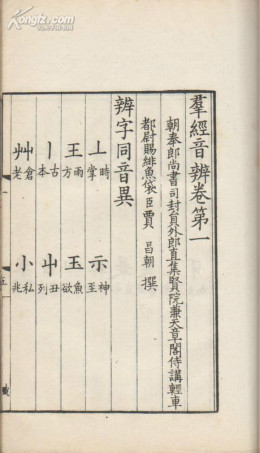 羣經音辨卷第一
朝奉郎尚書司封員外郎直集賢院兼天章閣侍講輕車
都尉賜緋魚袋臣賈昌朝撰
辨字同音異
丄時掌 示神至
王雨方 玉魚欲
丨古本 屮丑列
艸倉老 小私兆